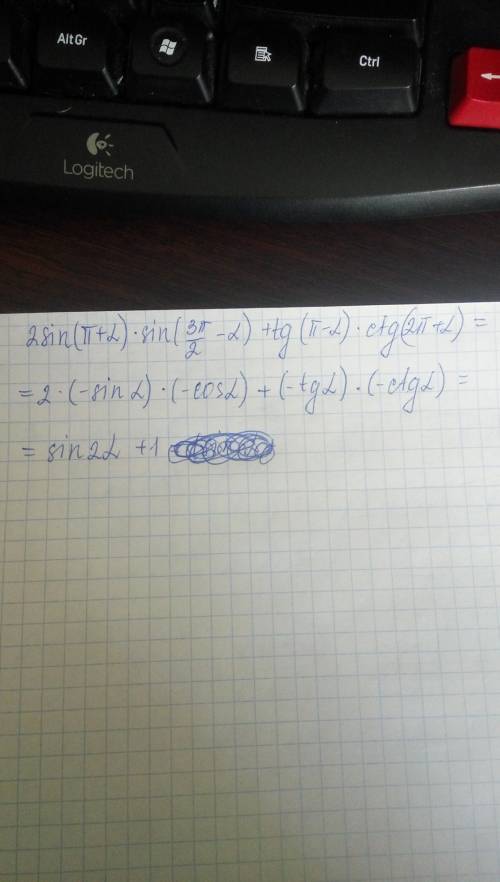 Alt Gr
Ctrl
Logitech
2sin(π+α)·sin(3π/2-α)+tg(π-α)·ctg(2π+α)=
=2·(-sinα)·(-cosα)+(-tgα)·(-ctgα)=
=sin2α+1